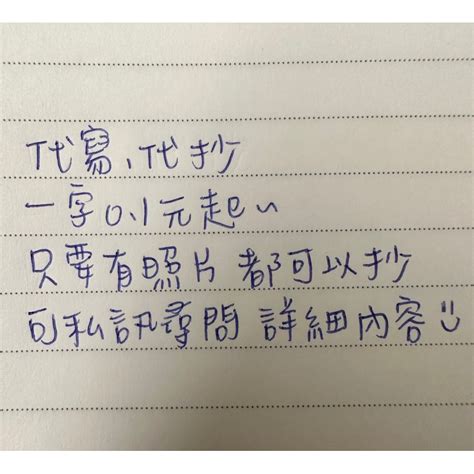 代寫、代抄
一字0.1元起~
只要有照片 都可以抄
可私訊尋問 詳細內容